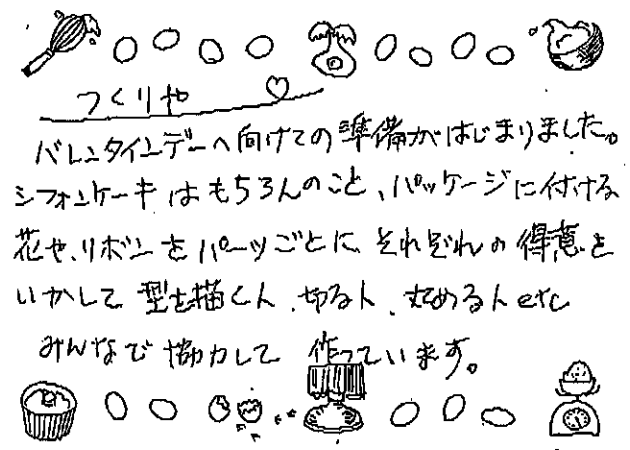 つくりや
バレンタインデーへ向けての準備がはじまりました。
シフォンケーキはもちろんのこと、パッケージに付ける
花や、リボンをパーツごとに、それぞれの得意を
いかして型を描く人、切る人、丸める人etc
みんなで協力して作っています。